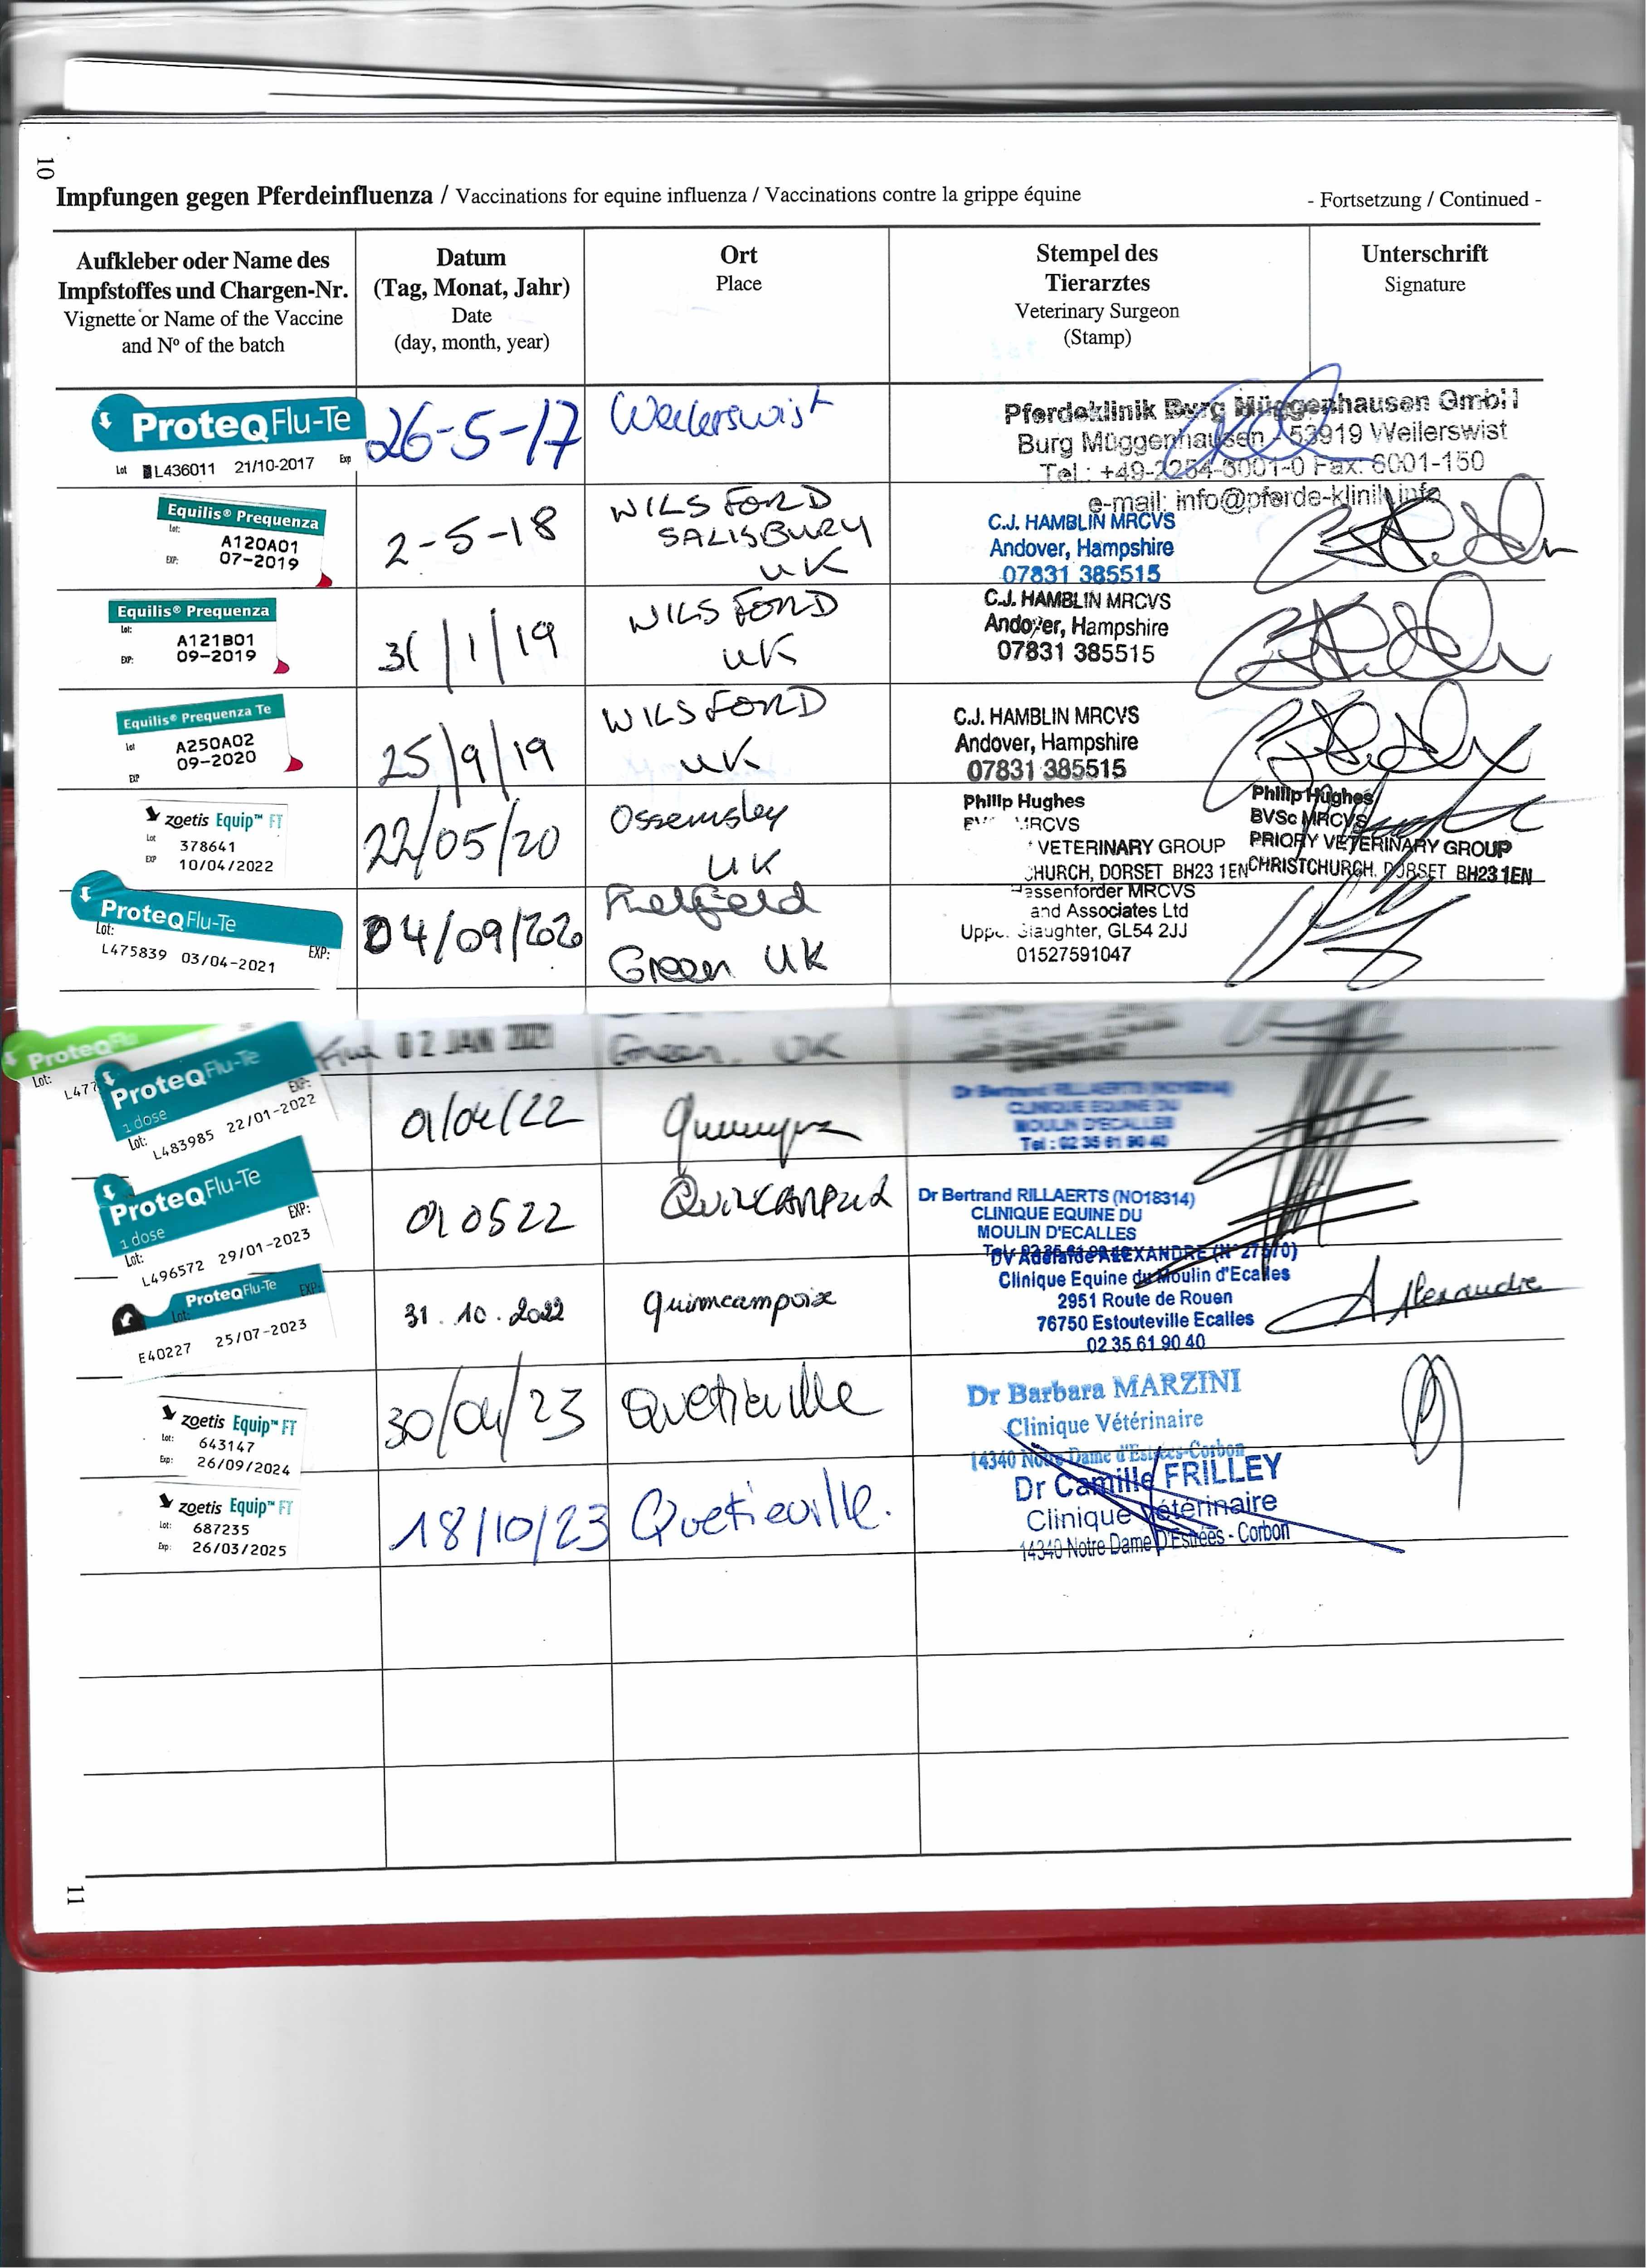 10
Impfungen gegen Pferdeinfluenza / Vaccinations for equine influenza / Vaccinations contre la grippe équine
- Fortsetzung / Continued -
Aufkleber oder Name des
Impfstoffes und Chargen-Nr.
Vignette or Name of the Vaccine
and Nº of the batch
Datum
(Tag, Monat, Jahr)
Date
(day, month, year)
Ort
Place
Stempel des
Tierarztes
Veterinary Surgeon
(Stamp)
Unterschrift
Signature
ProteqFlu-Te
Lot L436011 21/10-2017 Exp
26-5-17
Weilerswist
Pferdeklinik Burg Müggenhausen GmbH
Burg Müggenhausen - 53919 Weilerswist
Tel.: +49-2254-6001-0 Fax: 6001-150
e-mail: info@pferde-klinik.info
Equilis® Prequenza
Lot:
A120A01
EXP: 07-2019
2-5-18
WILSFORD
SALISBURY
UK
C.J. HAMBLIN MRCVS
Andover, Hampshire
07831 385515
Equilis® Prequenza
Lot:
A121B01
EXP: 09-2019
31/1/19
WILSFORD
UK
C.J. HAMBLIN MRCVS
Andover, Hampshire
07831 385515
Equilis® Prequenza Te
Lot A250A02
09-2020
EXP
25/9/19
WILSFORD
UK
C.J. HAMBLIN MRCVS
Andover, Hampshire
07831 385515
zoetis Equip™ FT
Lot 378641
EXP 10/04/2022
22/05/20
Ossemsley
UK
Philip Hughes
MRCVS
VETERINARY GROUP
HURCH, DORSET BH23 1EN
Philip Hughes
BVSc MRCVS
PRIORY VETERINARY GROUP
CHRISTCHURCH, DORSET BH23 1EN
ProteqFlu-Te
Lot: EXP:
L475839 03/04-2021
04/09/2020
Green UK
essenforder MRCVS
and Associates Ltd
Slaughter, GL54 2JJ
01527591047
ProteqFlu
Lot:
L477
02 JAN 2021
Green, UK
ProteqFlu-Te
1 dose EXP:
Lot: L483985 22/01-2022
01/04/22
Dr Bertrand RILLAERTS (NO18314)
CLINIQUE EQUINE DU
MOULIN D'ECALLES
Tel : 02 35 61 90 40
ProteqFlu-Te
1 dose EXP:
Lot: L496572 29/01-2023
010522
Dr Bertrand RILLAERTS (NO18314)
CLINIQUE EQUINE DU
MOULIN D'ECALLES
ProteqFlu-Te
Lot: EXP:
E40227 25/07-2023
31.10.2022
Quincampoix
DV Adelaide ALEXANDRE (N° 27570)
Clinique Equine du Moulin d'Ecalles
2951 Route de Rouen
76750 Estouteville Ecalles
02 35 61 90 40
A Alexandre
zoetis Equip™ FT
Lot: 643147
Exp: 26/09/2024
30/04/23
Quetieville
Dr Barbara MARZINI
Clinique Vétérinaire
14340 Notre Dame d'Estrées-Corbon
zoetis Equip™ FT
Lot: 687235
Exp: 26/03/2025
18/10/23
Quetieville.
Dr Camille FRILLEY
Clinique Vétérinaire
14340 Notre Dame D'Estrées - Corbon
11